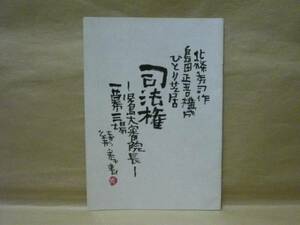 北條秀司作
島田正吾横演
ひとり芝居
司法権
―児島大審院長―
一幕三場